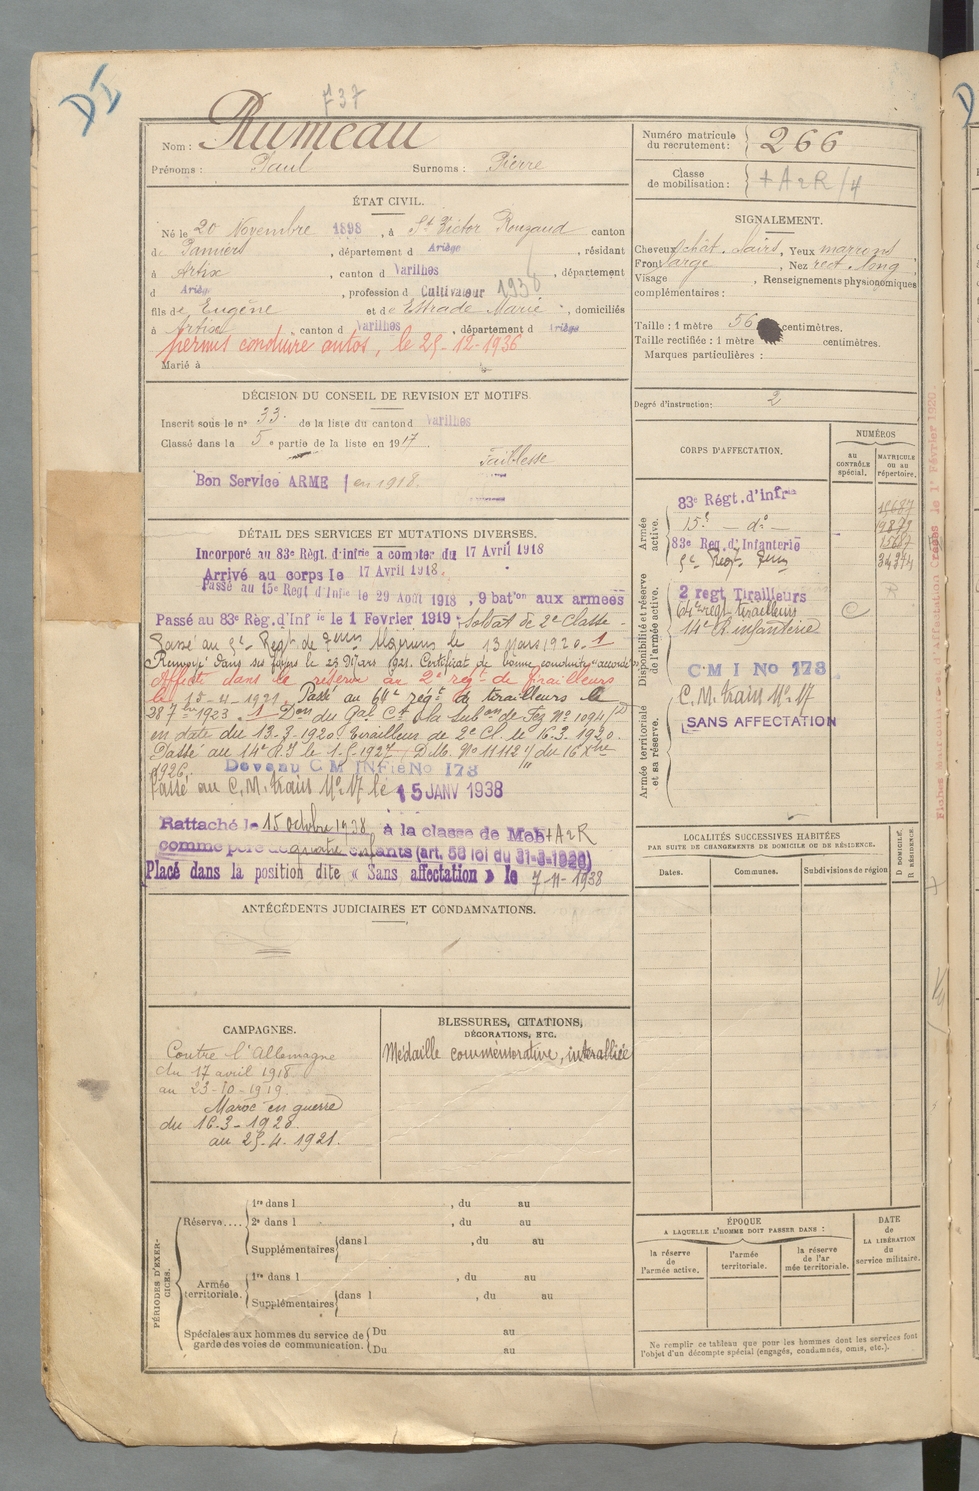 737
Nom : Rumeau
Prénoms : Paul Surnoms : Pierre
ÉTAT CIVIL.
Né le 20 Novembre 1898, à St Victor Rouzaud canton
de Pamiers, département d Ariège, résidant
à Artix, canton d Varilhes, département
d Ariège, profession d Cultivateur 1936
fils de Eugène et de Estrade Marie, domiciliés
à Artix, canton d Varilhes, département d Ariège
permis conduire autos, le 29-12-1936
Marié à
DÉCISION DU CONSEIL DE REVISION ET MOTIFS
Inscrit sous le n° 33 de la liste du canton d Varilhes
Classé dans la 5e partie de la liste en 1917
Faiblesse
Bon Service ARMÉ en 1918.
DÉTAIL DES SERVICES ET MUTATIONS DIVERSES.
Incorporé au 83e Régt. d'infrie à compter du 17 Avril 1918
Arrivé au corps le 17 Avril 1918.
Passé au 15e Regt d'Infie le 29 Aout 1918, 9 bat'on aux armées
Passé au 83e Rég. d'Infie le 1 Fevrier 1919. Soldat de 2e Classe
Passé au Régt de Algériens le 13 Mars 1920. 1
Renvoyé dans ses foyers le 23 Mars 1921. Certificat de bonne conduite "accordé"
Affecté dans la réserve au 2e régt de tirailleurs
le 15-4-1921. Passé au 64e régt de tirailleurs le
28 7bre 1923. 1 Don du Gal Ct la Subon de Fez No 1094
en date du 13-3-1920. Tirailleur de 2e Cl. le 16.3.1920.
Passé au 14e R.I le 1-5-1927 D.M. No 11112 du 16 Xbre
1926. Devenu C M INFie No 178
Passé au C.M. train No 17 le 15 JANV 1938
Rattaché le 15 octobre 1938 à la classe de Mob + A 2 R
comme père de quatre enfants (art. 58 loi du 31-3-1928)
Placé dans la position dite « Sans affectation » le 7-11-1938
ANTÉCÉDENTS JUDICIAIRES ET CONDAMNATIONS.
CAMPAGNES.
Contre l'Allemagne
du 17 avril 1918
au 23-10-1919.
Maroc en guerre
du 16.3-1920
au 25.4.1921.
BLESSURES, CITATIONS,
DÉCORATIONS, ETC.
Médaille commémorative, interalliée
PÉRIODES D'EXERCICES.
Réserve....
1re dans l , du au
2e dans l , du au
Supplémentaires dans l , du au
Armée territoriale.
1re dans l , du au
Supplémentaires dans l , du au
Spéciales aux hommes du service de garde des voies de communication.
Du au
Du au
Numéro matricule du recrutement : 266
Classe de mobilisation : + A 2 R / 4
SIGNALEMENT.
Cheveux chât. clairs, Yeux marrons
Front large, Nez rect. long
Visage , Renseignements physionomiques
complémentaires :
Taille : 1 mètre 56 centimètres.
Taille rectifiée : 1 mètre centimètres.
Marques particulières :
Degré d'instruction : 2
CORPS D'AFFECTATION.
NUMÉROS
au CONTRÔLE spécial.
MATRICULE ou au répertoire.
Armée active.
83e Régt. d'infrie 15687
15e — do — 9879
83e Reg. d'Infanterie 15687
34374
Disponibilité et réserve de l'armée active.
2 regt Tirailleurs R
64e régt tirailleurs C
14e R. infanterie
C M I No 178
Armée territoriale et sa réserve.
C. M. train No 17
SANS AFFECTATION
LOCALITÉS SUCCESSIVES HABITÉES
PAR SUITE DE CHANGEMENTS DE DOMICILE OU DE RÉSIDENCE.
Dates.
Communes.
Subdivisions de région
D DOMICILE.
R RÉSIDENCE.
ÉPOQUE
A LAQUELLE L'HOMME DOIT PASSER DANS :
la réserve de l'armée active.
l'armée territoriale.
la réserve de l'armée territoriale.
DATE de LA LIBÉRATION du service militaire.
Ne remplir ce tableau que pour les hommes dont les services font
l'objet d'un décompte spécial (engagés, condamnés, omis, etc.).